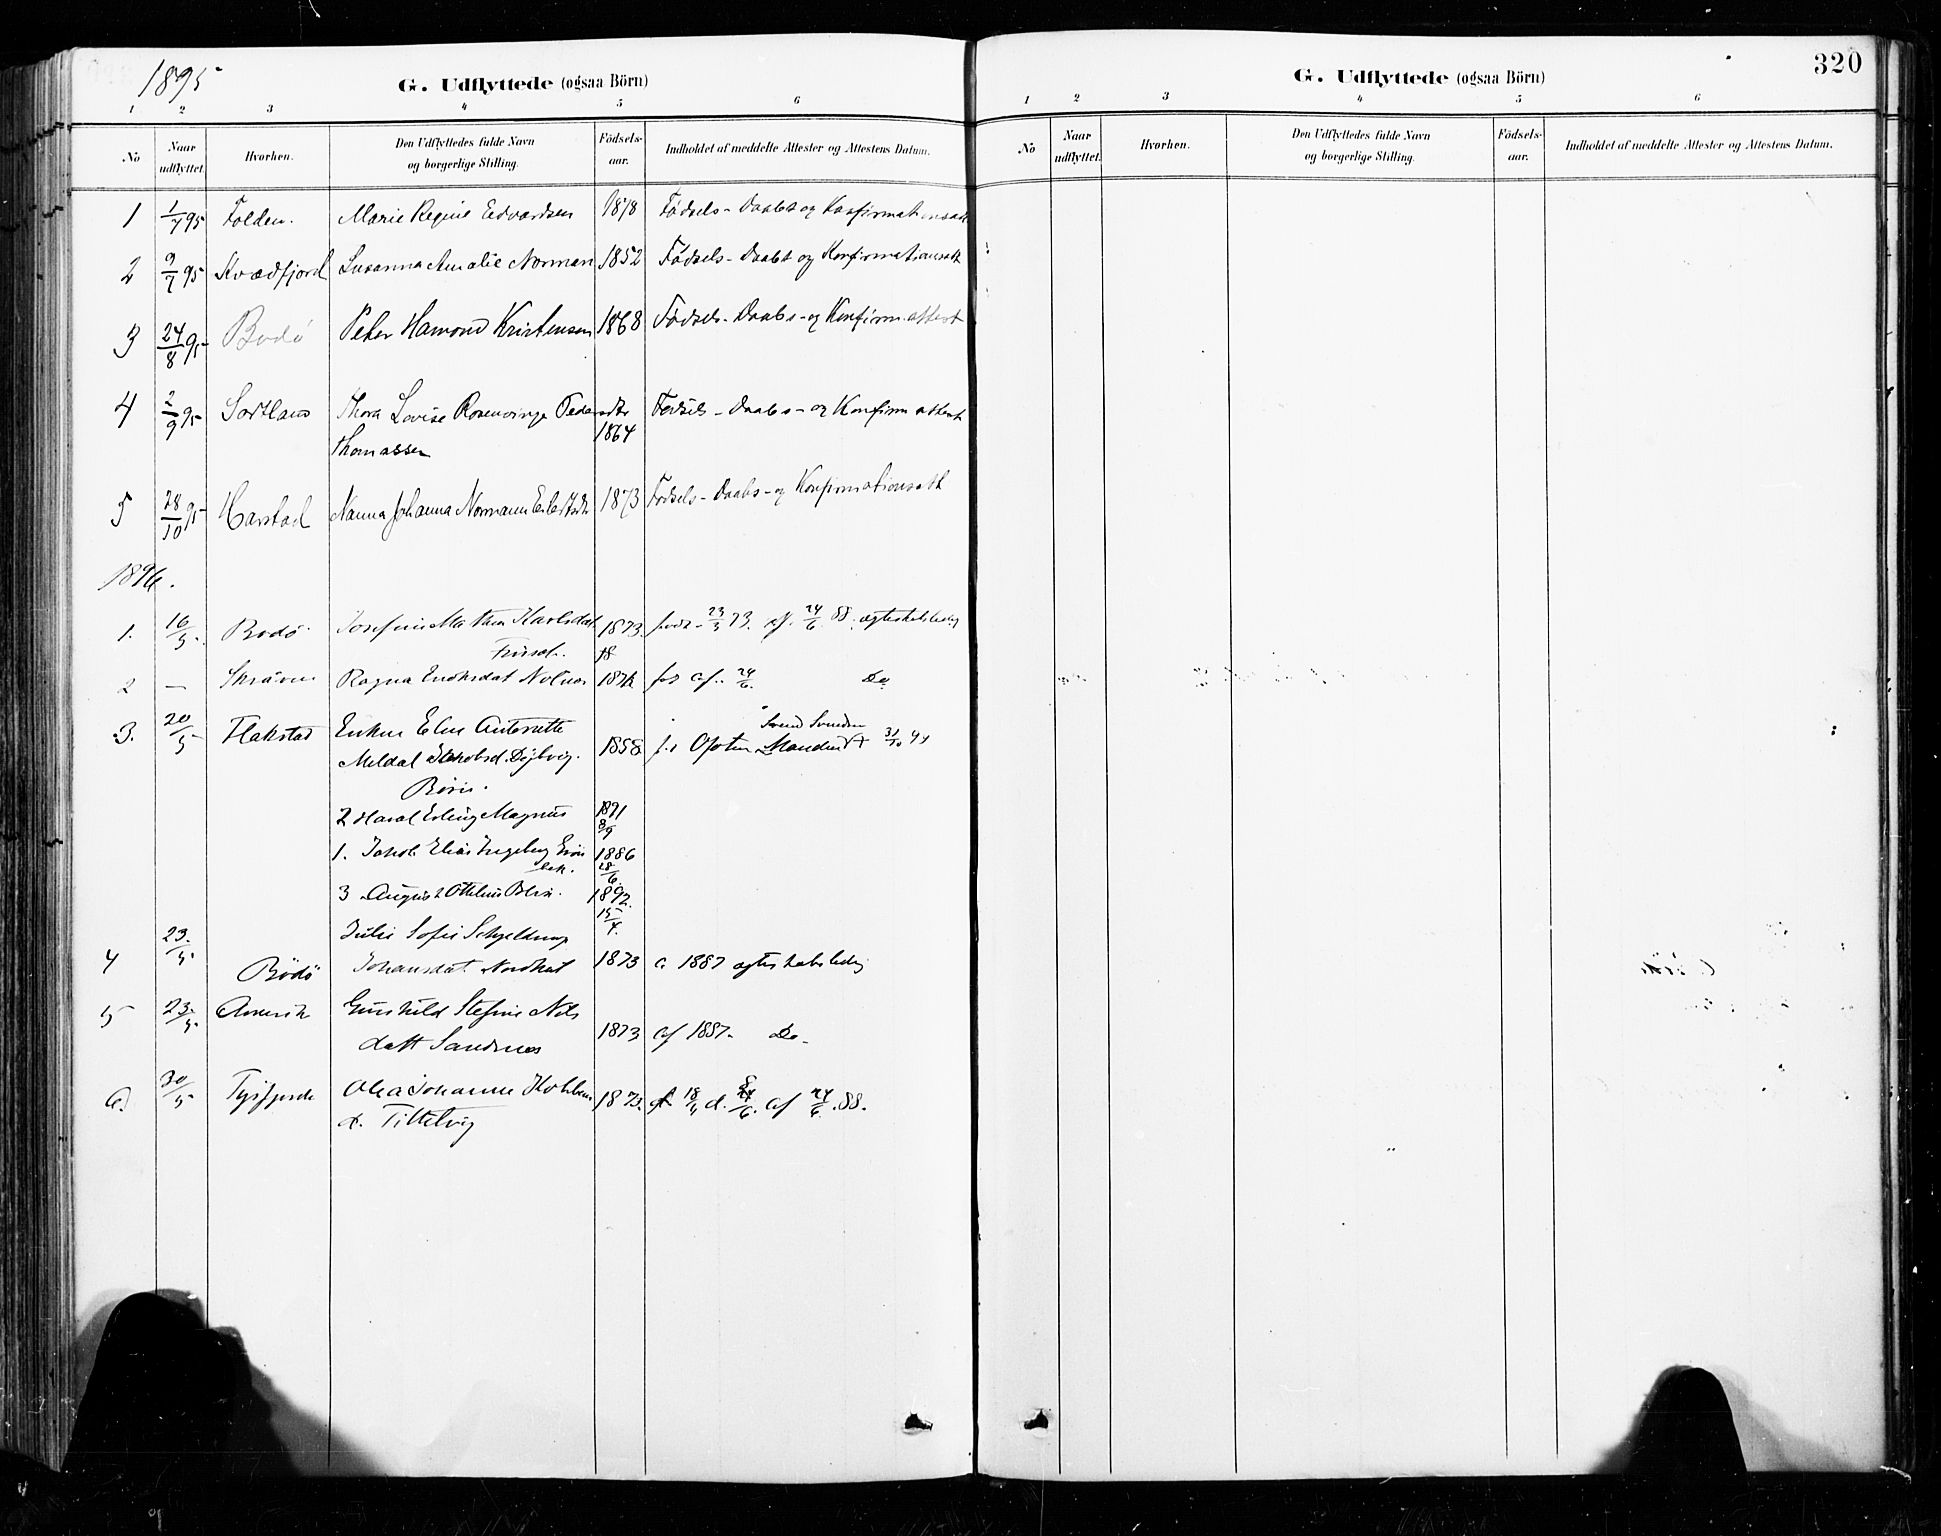 1895
G. Udflyttede (ogsaa Börn)
1 2 3 4 5 6
No
Naar udflyttet.
Hvorhen.
Den Udflyttedes fulde Navn og borgerlige Stilling.
Födsels-aar.
Indholdet af meddelte Attester og Attestens Datum.
1 1/7 95 Folden. Marie Regine Edvardsen 1878 Fødsels- Daabs og Konfirmationsatt
2 9/7 95 Kvædfjord Susanna Amalie Norman 1852 Fødsels- Daabs og Konfirmationsatt
3 24/8 95 Bodø Peter Hamond Kristensen 1868 Fødsels- Daabs- og Konfirm. attest
4 2/9 95 Sortland Thora Lovise Rosenvinge Pedersdtr 1864 Fødsels- Daabs- og Konfirm attest
Thomassen
5 28/10 95 Harstad Nanna Johanna Normann 1873 Fødsels- Daabs- og Konfirmationsatt
1896.
1. 16/5. Bodø Josefine Karlsdat. 1873. 23/3 73. cf. 24/6 88. ægteskabsledig
18
2 — Ragna 1872 cf. 24/6. Do
3. 20/5 Flakstad Enken Antonette 1858. Ofoten Manden † 31/10 94
Meldal
Børn.
2 Haral Erling Magnus 1891 8/9
1. Jakob Elias Ingeberg 1886 28/6.
3 August 1892. 15/4.
4 23/5. Julie Sofie Schjeldrup
Bodø Johansdat. 1873 c. 1887 ægteskabsledig
5 23/5 Amerik Gunhild Stefine Nils
datt Sandnes 1873 cf 1887. Do.
6. 30/5 Tysfjorde Olea Johanne 1873. 18/4 d. 6. cf 24/6. 88.
d. Tittelvig
320
G. Udflyttede (ogsaa Börn)
1 2 3 4 5 6
No
Naar udflyttet.
Hvorhen.
Den Udflyttedes fulde Navn og borgerlige Stilling.
Födsels-aar.
Indholdet af meddelte Attester og Attestens Datum.